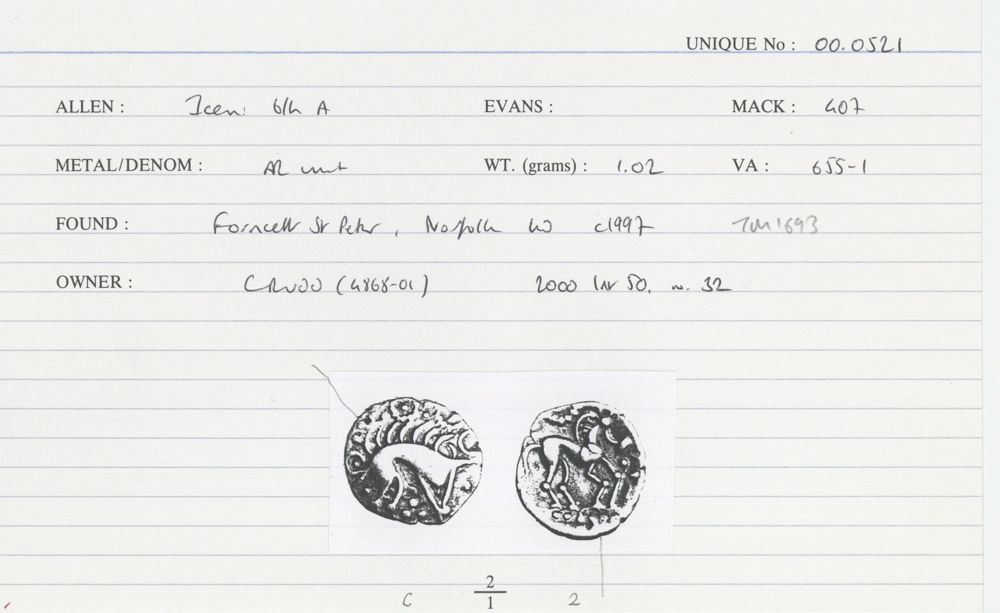 UNIQUE No : 00.0521
ALLEN : Iceni b/h A EVANS : MACK : 407
METAL/DENOM : AR unit WT. (grams) : 1.02 VA : 655-1
FOUND : Forncett St Peter, Norfolk c1997
OWNER : (4868-01) 2000 50. 32
2
C 1 2